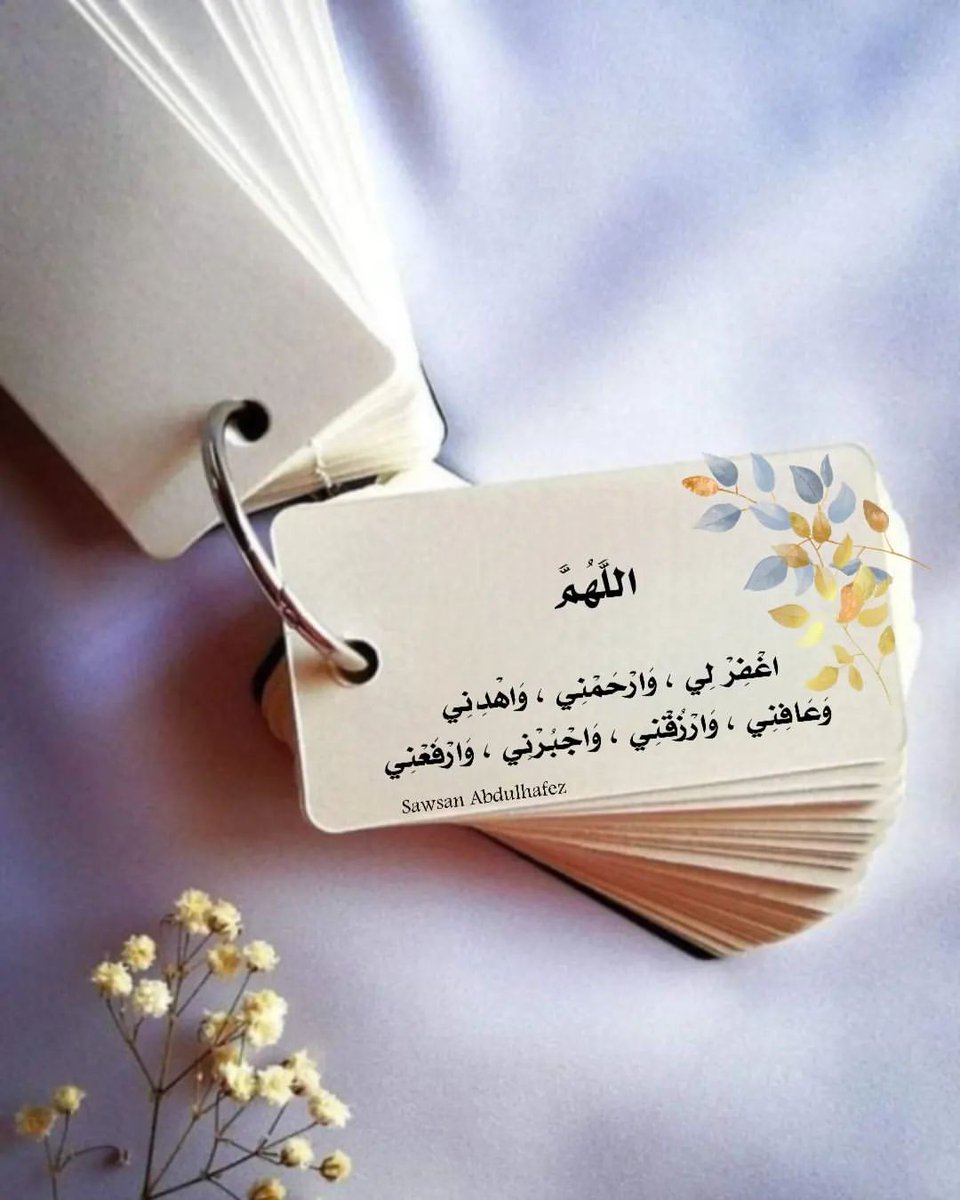 اللَّهُمَّ
اغْفِرْ لِي ، وَارْحَمْنِي ، وَاهْدِنِي
وَعَافِنِي ، وَارْزُقْنِي ، وَاجْبُرْنِي ، وَارْفَعْنِي
Sawsan Abdulhafez